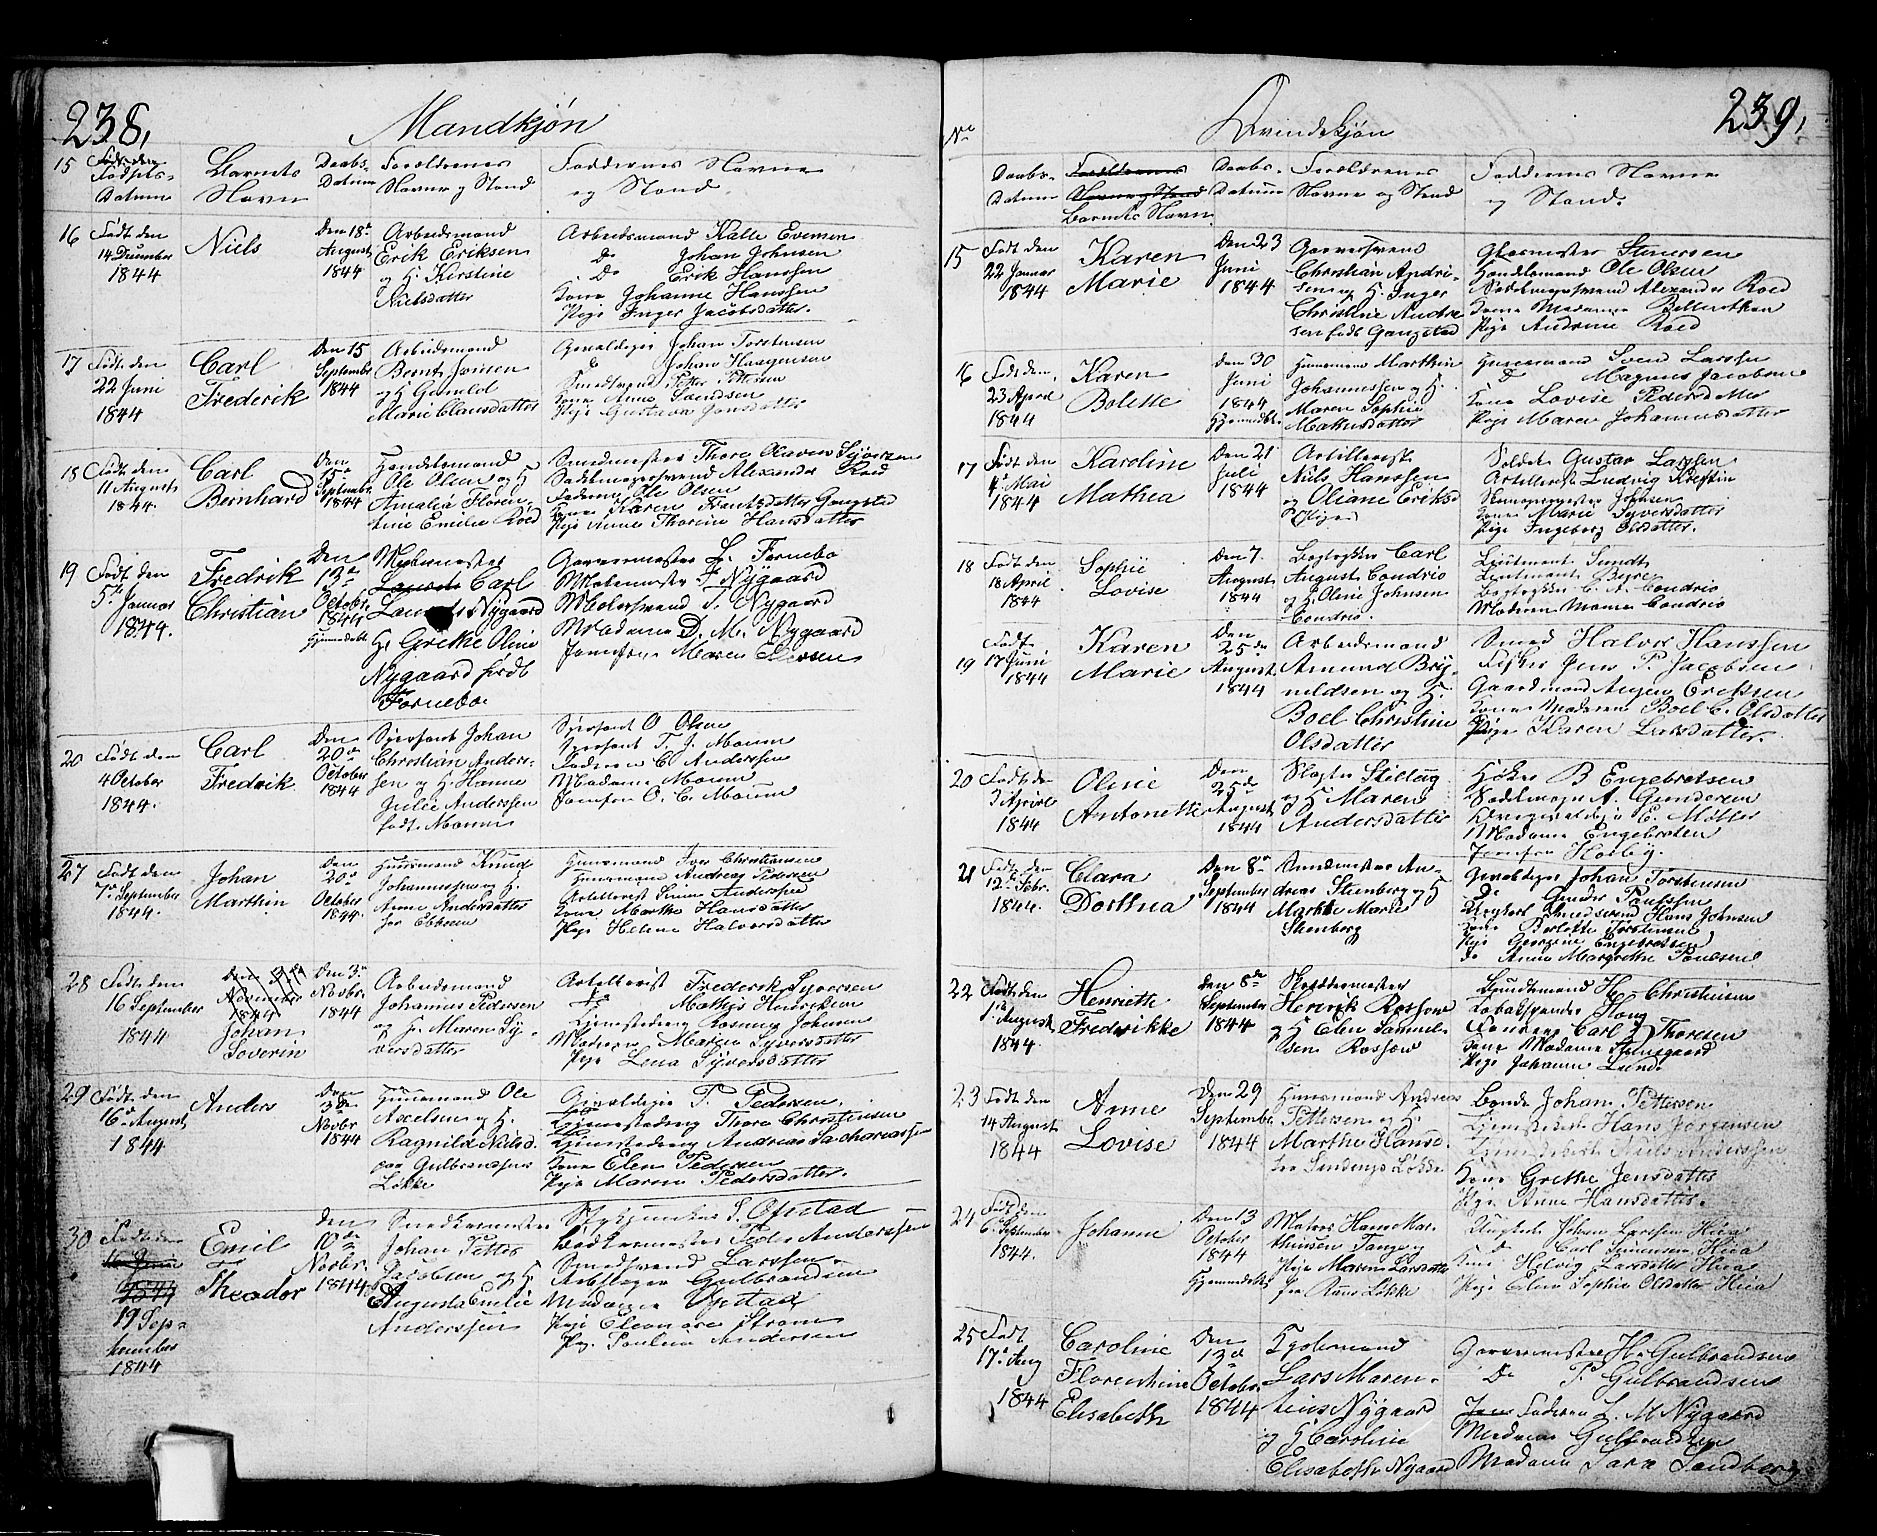 238.
Mandkjøn
15 Født den
Fødsels-
Datum
Barnets
Navn
Daabs-
Datum
Forældrenes
Navne og Stand
Faddernes Navne
og Stand.
16 Født den
14 December
1844
Niels
Den 18de
August
1844
Arbeidsmand
Erik Eriksen
og H. Kirstine
Nielsdatter
Arbeidsmand Kalle Evensen
Do Johan Johnsen
Do Erik Hanssen
Kone Johanne Hanssen
Pige Inger Jacobsdatter.
17 Født den
22 Juni
1844
Carl
Frederik
Den 15
September
1844
Arbeidsmand
Bernt Jonsen
og H. Gunild
Marie Clausdatter
Johan Torstensen
do Johan Haagensen
Smedsvend Petter Pettersen
Kone Anne Svendsen
Pige Gustava Jonsdatter
18 Født den
11 August
1844.
Carl
Bernhard
Den
15de
Septembr.
1844
Handelsmand
Ole Olsen og H
Amalia Floren-
tine Emilie Roed
Smedmester Thore Olaves Syversen
Sadelmagersvend Alexander Roed
Faderen Ole Olsen
Kone Karen Frantsdatter Gangstad
Pige Anne Thorine Hansdatter
19 Født den
5te Januar
1844.
Fredrik
Christian
Den
13de
Octobr.
1844
Hjemmedøbt
Carl
Laurits Nygaard
H. Grethe Oline
Nygaard født
Fornebo.
Garvermester L. Fornebo
Malermester F. Nygaard
Malersvend T. Nygaard
Madame D. M. Nygaard
Jomfrue Maren Eversen
20 Født den
4 October
1844.
Carl
Fredrik
Den
20de
October
1844
Sjersant Johan
Christian Anders-
sen og H. Hanne
Julie Anderssen
født Moum
Sjersant O. Olsen
Sjersant T. J. Moum
Faderen C. Anderssen
Madame Moum
Jomfru O. C. Moum
27 Født den
7de September
1844.
Johan
Marthin
Den
20de
October
1844.
Huusmand Knud
Johannessen og H.
Anne Andersdatter
fra Ebbesen
Huusmand Iver Christiansen
Huusmand Andreas Pedersen
Artillerist Simen Anderssen
Kone Marthe Hansdatter
Pige Helene Halvorsdatter
28 Født den
16 September
1844
Johan
Soverin
Den 3de
Novbr.
1844
Arbeidsmand
Johannes Pedersen
og H. Maren Sy-
versdatter
Artillerist Frederik Syversen
Do Mathis Hendriksen
Tjenestedreng Rasmus Johnsen
Maren Syversdatter
Pige Lena Syversdatter
29 Født den
16de August
1844
Anders
Den
3de
Novbr
1844
Huusmand Ole
Axelsen og H.
Ragnild Nilsd.
paa Gulbrandsens
Løkke
T. Pedersen
Tjenestedreng Thore Christensen
Tjenestedreng Andreas Zachariassen
Kone Elen Pedersen
Pige Maren Pedersdatter.
30 Født den
19 Sep-
tember
1844
Emil
Theodor
Den
10de
Novbr.
1844
Snedkermester
Johan Petter
Jacobsen og H.
Augusta Emilie
Anderssen
S. Opstad
Peder Anderssen
Smedsvend Larssen
Gulbrandsen
Madame Opstad
Pige Eleonore Strøm
Pig. Pauline Andersen
239.
No
Qvindekjøn
Daabs-
Datum
Forældrenes
Navne og Stand
Barnets Navn
Daabs-
Datum
Forældrenes
Navne og Stand
Faddernes Navne
og Stand.
15 Født den
22 Januar
1844
Karen
Marie
Den 23
Juni
1844
Garversvend
Christian Andri-
sen og H. Inger
Christine Andre
sen født Gangstad
Glasmester Simensen
Handelsmand Ole Olsen
Sadelmagersvend Alexander Roed
Kone Madamme
Pige Andrine Roed
16 Født den
23 April
1844
Karen
Bolette
Den 30
Juni
1844
Hjemmedøbt
Huusmand Marthin
Johannessen og H.
Maren Sophie
Mathisdatter
Huusmand Svend Larssen
Do Magnus Jacobsen
Kone Lovise Pedersdatter
Pige Maren Johannesdatter
17 Født den
4de Mai
1844
Karoline
Mathea
Den 21
Juli
1844
Artillerist
Nils Hanssen
og Oliane Eriksd
(Pige)
Soldat Gustav Larssen
Artillerist Ludvig
Skomagermester Johnsen
Kone Marie Syversdatter
Pige Ingeborg Olsdatter.
18 Født den
18 April
1844
Sophie
Lovise
Den 7.
August
1844
Bogtrykker Carl
August Condrio
og H. Oline Johnsen
Condrio.
Lieutenant Sundt
Lieutenant Byre
Bogtrykker C. A. Condrio
Moderen Mame Condrio
19 Født
17 Juni
1844
Karen
Marie
Den
25de
August
1844
Arbeidsmand
Amund Bry-
nildsen og H.
Boel Christine
Olsdatter
Smed Halvor Hanssen
Fisker Jens P. Jacobsen
Gaardmand Eriksen
Kone Moderen Boel C. Olsdatter
Pige Karen Larsdatter.
20 Født den
3 April
1844
Oline
Antonette
Den
25de
August
1844
Slagter Stillug
og H. Maren
Andersdatter
Høker B Engebretsen
Sadelmager A. Gundersen
E. Møller
Madame Engebretsen
Jomfru Høeby.
21 Født den
12te Febr.
1844.
Clara
Dorthea
Den 8de
September
1844
Snedkermester An-
dreas Stenberg og H
Marthe Marie
Stenberg
Johan Torstensen
Do Gunder Paulssen
Ungkarl Smedsvend Hans Johnsen
Kone Berlotte Torstensen
Pige Georgine Engebretsen
do Anne Margrethe Poulsen
22 Født den
1de August
1844.
Henriette
Frederikke
Den 8de
September
1844
Skræddermester
Henrik Rossow
og H. Elen Samuel-
sen Rossow
H. Christensen
Høeg
Faderens Carl J. Thoresen
Kone Madame Steensgaard
Pige Johanne Lund.
23 Født den
14 August
1844
Anne
Lovise
Den 29
September
1844
Huusmand Andreas
Pettersen og H.
Marthe Hansd.
fra Sandengs Løkke
Bonde Johan Pettersen
Tjenestedreng Hans Jørgensen
Niels Anderssen
Kone Grethe Jensdatter
Pige Anne Hansdatter.
24 Født den
6te September
1844.
Johanne
Den 13
October
1844
Hjemmedøbt
Matros Hans Mar-
thinsen Tange og
Pige Maren Larsdatter
fra Løkke
Johan Larssen Huia
Do Carl Simensen Huia
Kone Helvig Larsdatter Huia
Pige Elen Sophie Olsdatter Huia
25 Født
17de Aug
1844
Caroline
Florentine
Elisabeth
Den
13de
Octobr.
1844
Lars Maren-
tius Nygaard
og H Caroline
Elisabeth Nygaard
Garvermester H. Gulbrandsen
Do P. Gulbrandsen
Faderen L. M. Nygaard
Madame Gulbrandsen
Madame Sara Sandberg